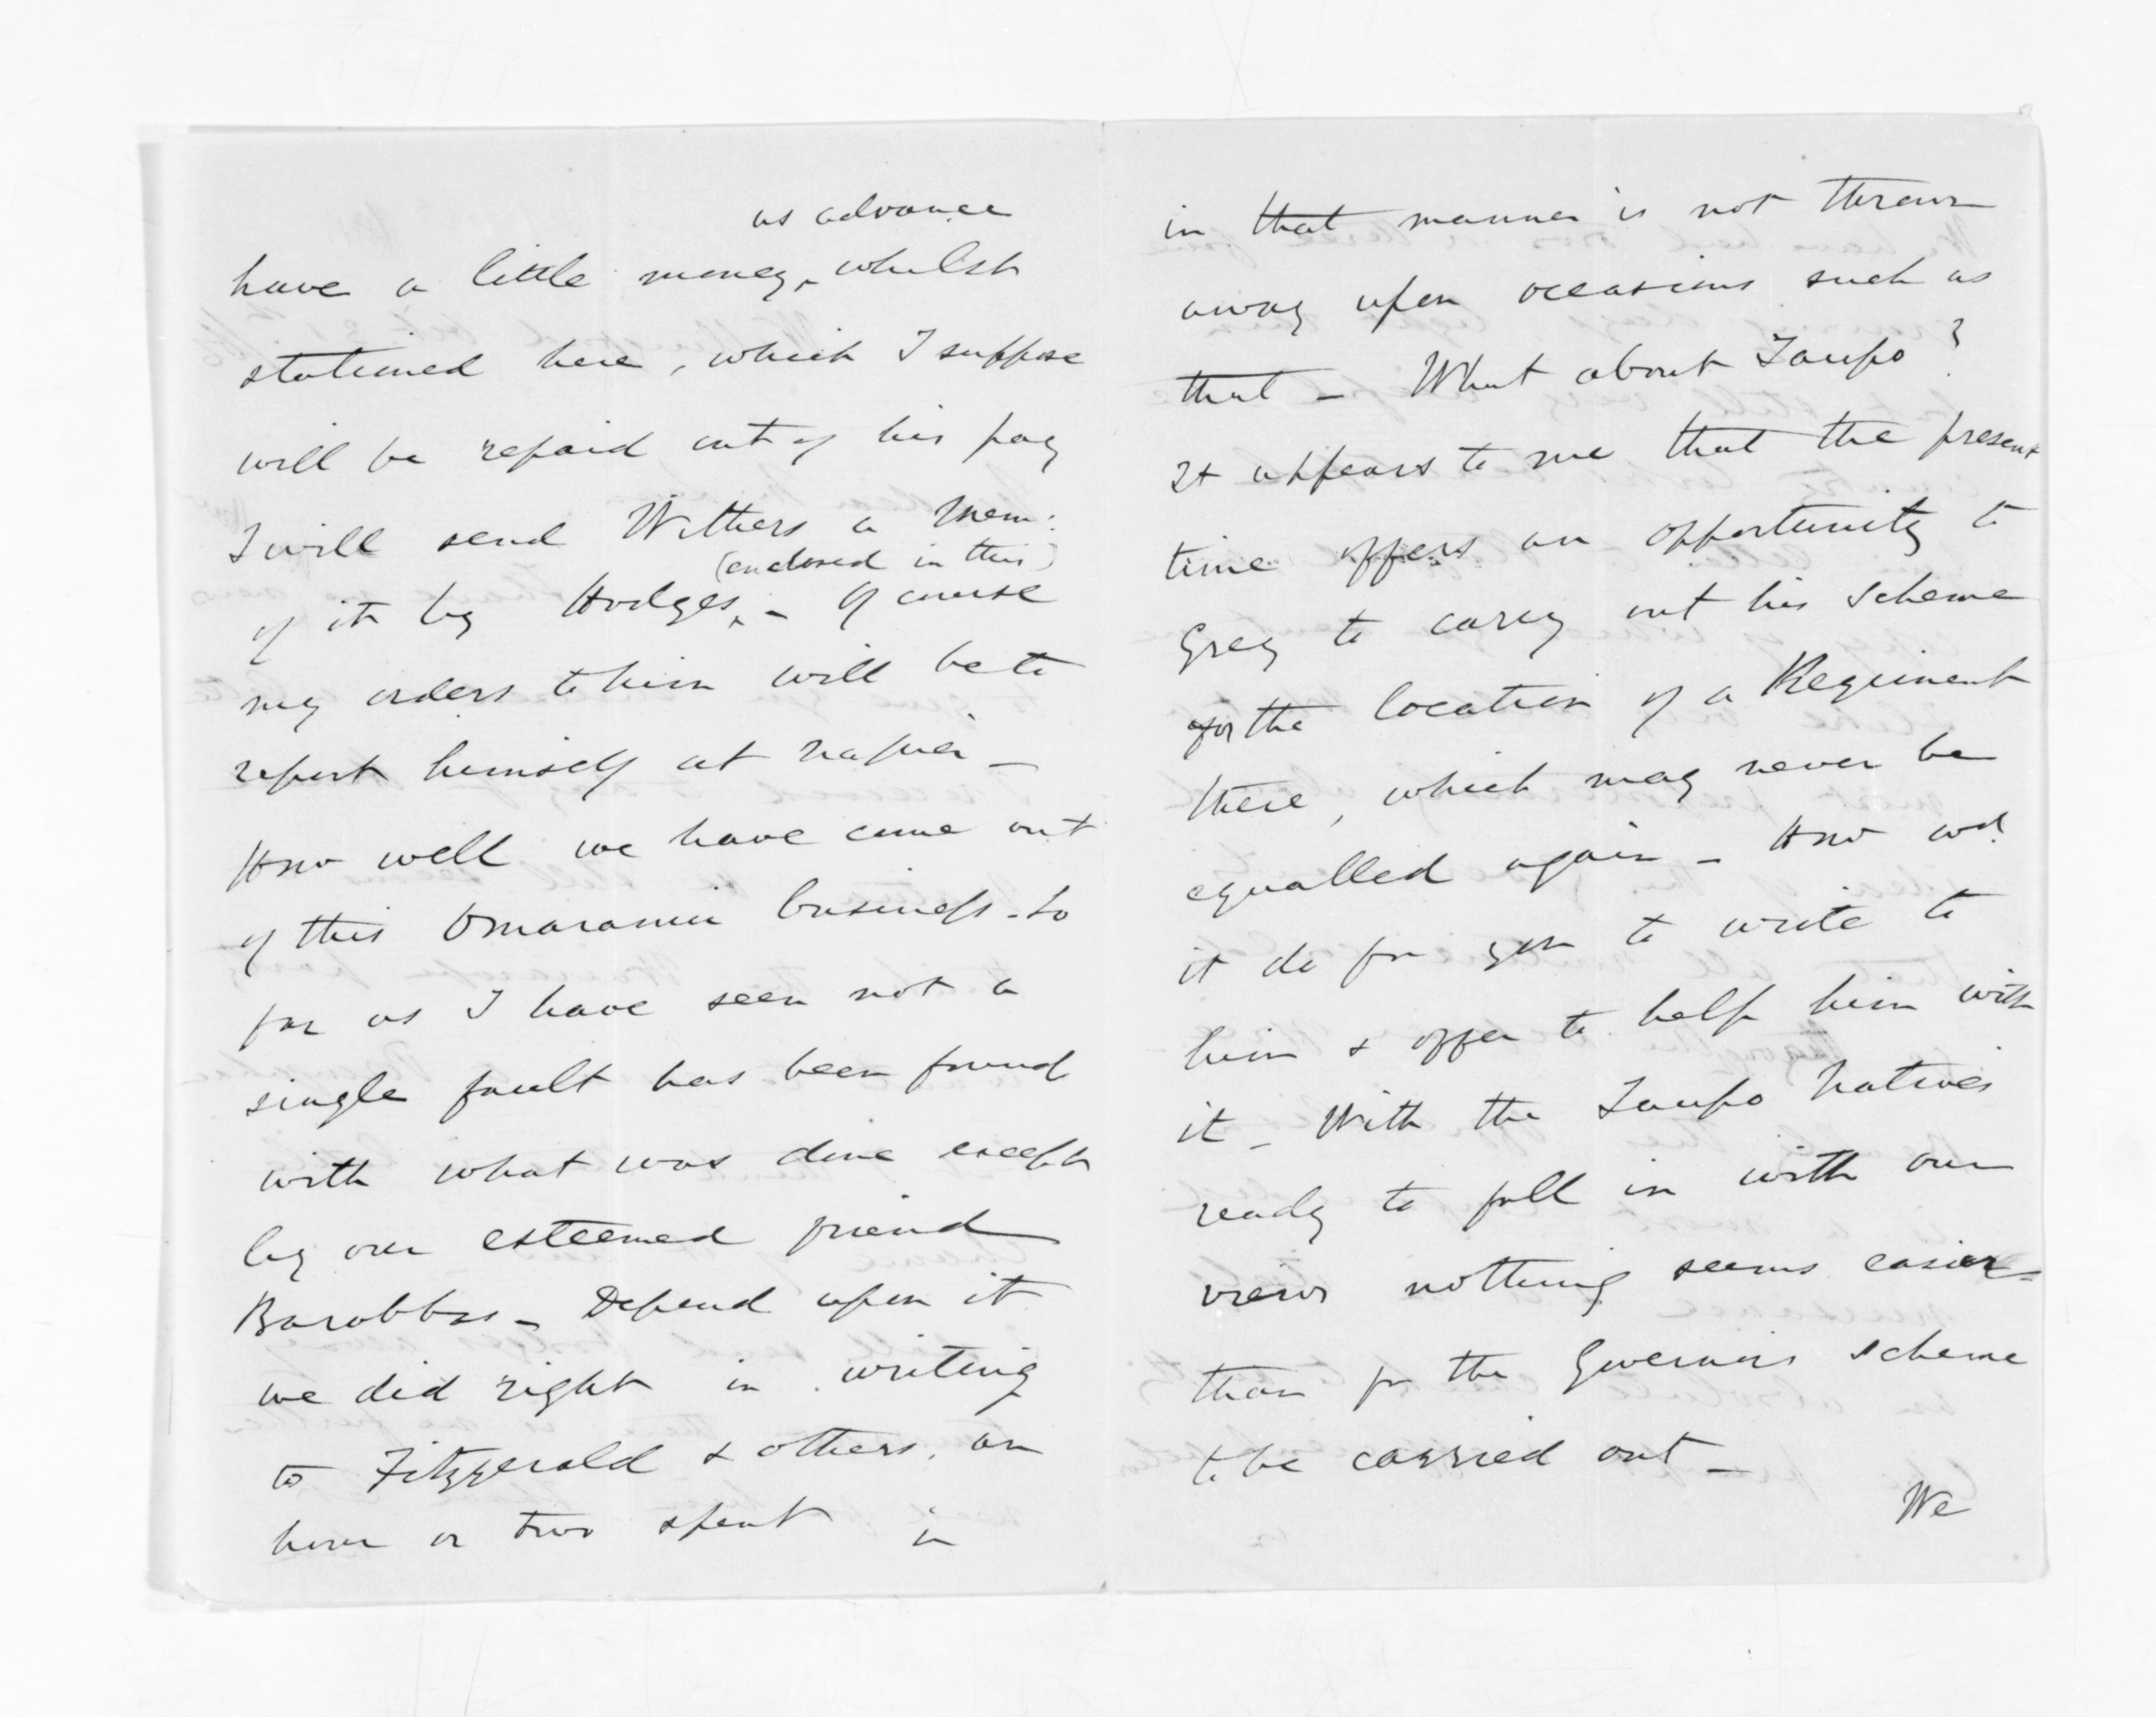 as advance
have a little money, whilst
stationed here, which I suppose
will be repaid out of his pay
I will send Withers a Mem:
(enclosed in this)
of it by Hodges, - Of course
my orders to him will be to
report himself at Napier -
How well we have come out
of this Omaranui business - So
far as I have seen not a
single fault has been found
with what was done except
by our esteemed friend
Barabbas - Depend upon it
we did right in writing
to Fitzgerald & others, an
hour or two spent in
in that manner is not thrown
away upon occasions such as
that - What about Taupo?
It appears to me that the present
time offers an opportunity to
Grey to carry out his scheme
for the location of a Regiment
there, which may never be
equalled again - How wd.
it do for you to write to
him & offer to help him with
it - With the Taupo Natives
ready to fall in with our
views nothing seems easier
than for the Governors scheme
to be carried out -
We